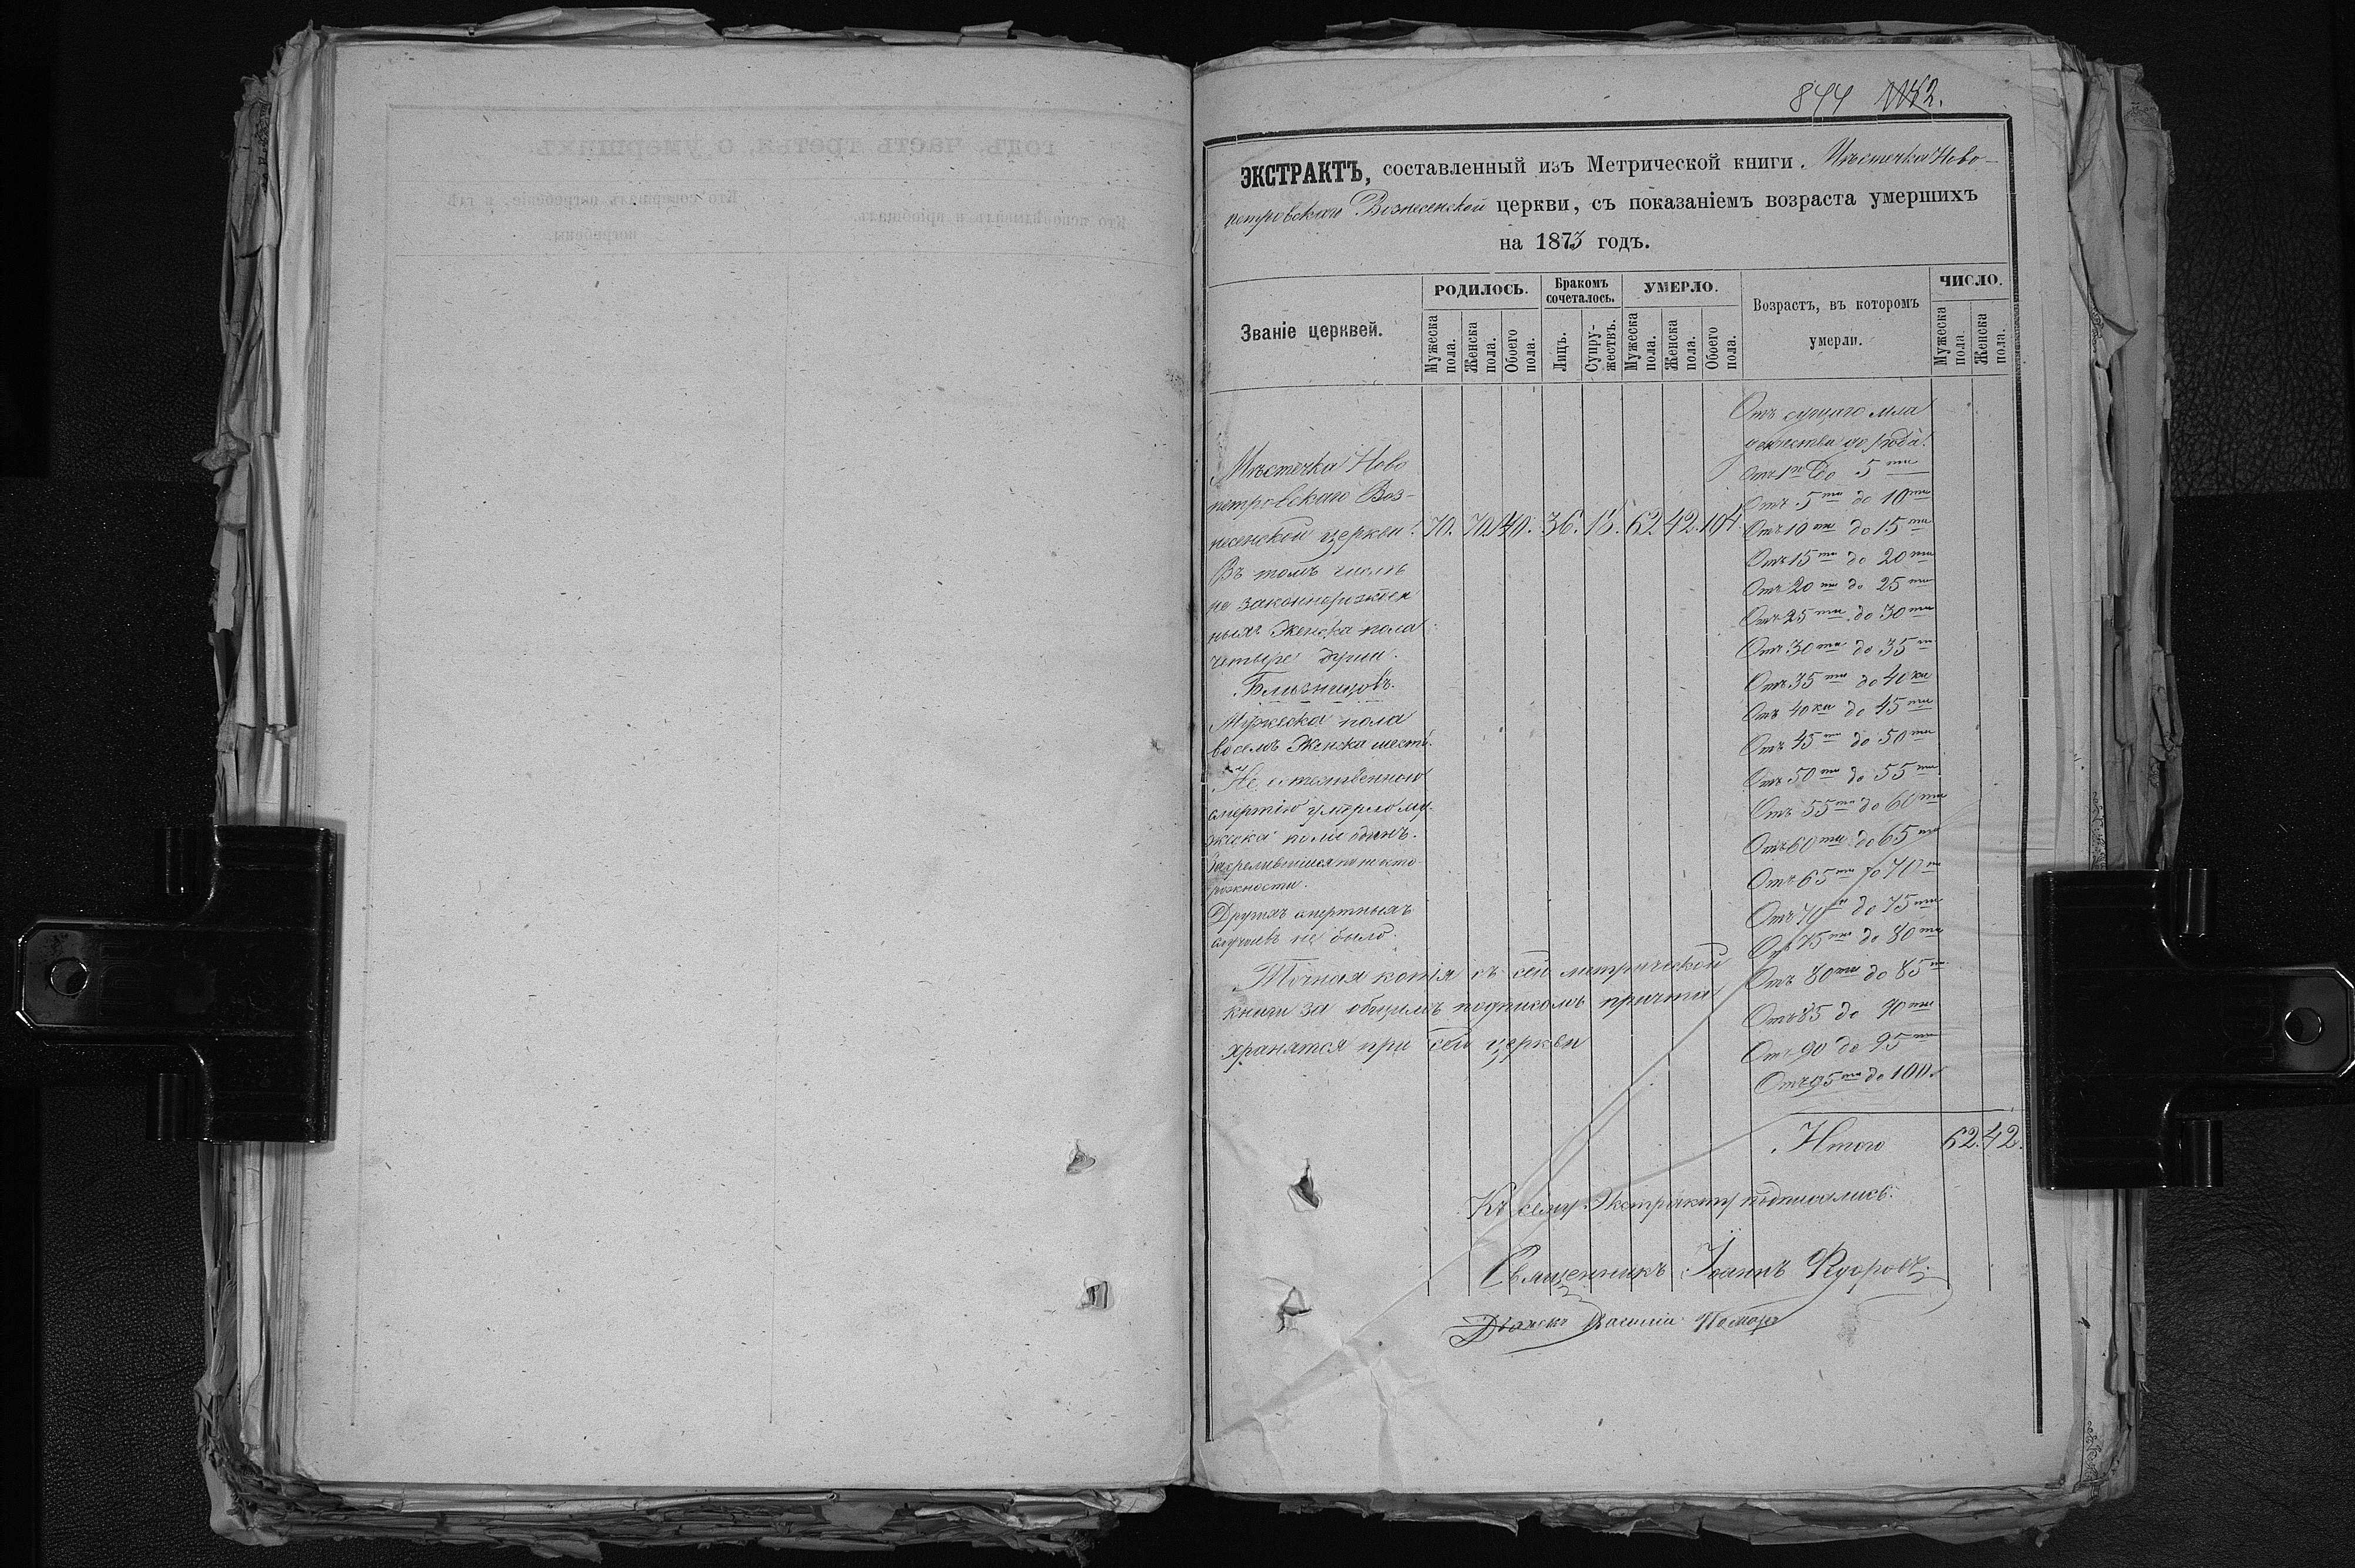 844
ЭКСТРАКТЪ, составленный изъ Метрической книги. Мѣстечка Ново-
петровскаго Вознесенской церкви, съ показаніемъ возраста умершихъ
на 1873 годъ.
Званіе церквей.
РОДИЛОСЬ.
Мужеска пола.
Женска пола.
Обоего пола.
Бракомъ сочеталось.
Лицъ.
Супружествъ.
УМЕРЛО.
Мужеска пола.
Женска пола.
Обоего пола.
Возрастъ, въ которомъ
умерли.
ЧИСЛО.
Мужеска пола
Женска пола.
Мѣстечка Ново
петровскаго Воз-
несенской церкви. 70. 70. 140. 36. 18. 62. 42. 104.
Въ томъ числѣ
не законнорожден
ныхъ Женска пола
четыре души.
Близнецовъ.
Мужеска пола
восемь Женска шесть.
Не естественною
смертію умерло му-
жеска пола одинъ.
по неосто-
рожности.
Другихъ смертныхъ
случаевъ не было.
Точная копія съ сей метрической
книги за общимъ подписомъ причта
хранятся при сей церкви
Отъ сущаго мла
денчества до 1 года.
Отъ 1го до 5ти
Отъ 5ти до 10ти
Отъ 10ти до 15ти
Отъ 15ти до 20ти
Отъ 20ти до 25ти
Отъ 25ти до 30ти
Отъ 30ти до 35ти
Отъ 35ти до 40ка
Отъ 40ка до 45ти
Отъ 45ти до 50ти
Отъ 50ти до 55ти
Отъ 55ти до 60ти
Отъ 60ти до 65ти
Отъ 65ти до 70ти
Отъ 70ти до 75ти
Отъ 75ти до 80ти
Отъ 80ти до 85ти
Отъ 85 до 90ти
Отъ 90 до 95ти
Отъ 95ти до 100.
Итого 62. 42.
Къ сему Экстракту подписались:
Священникъ Іоаннъ
Василій